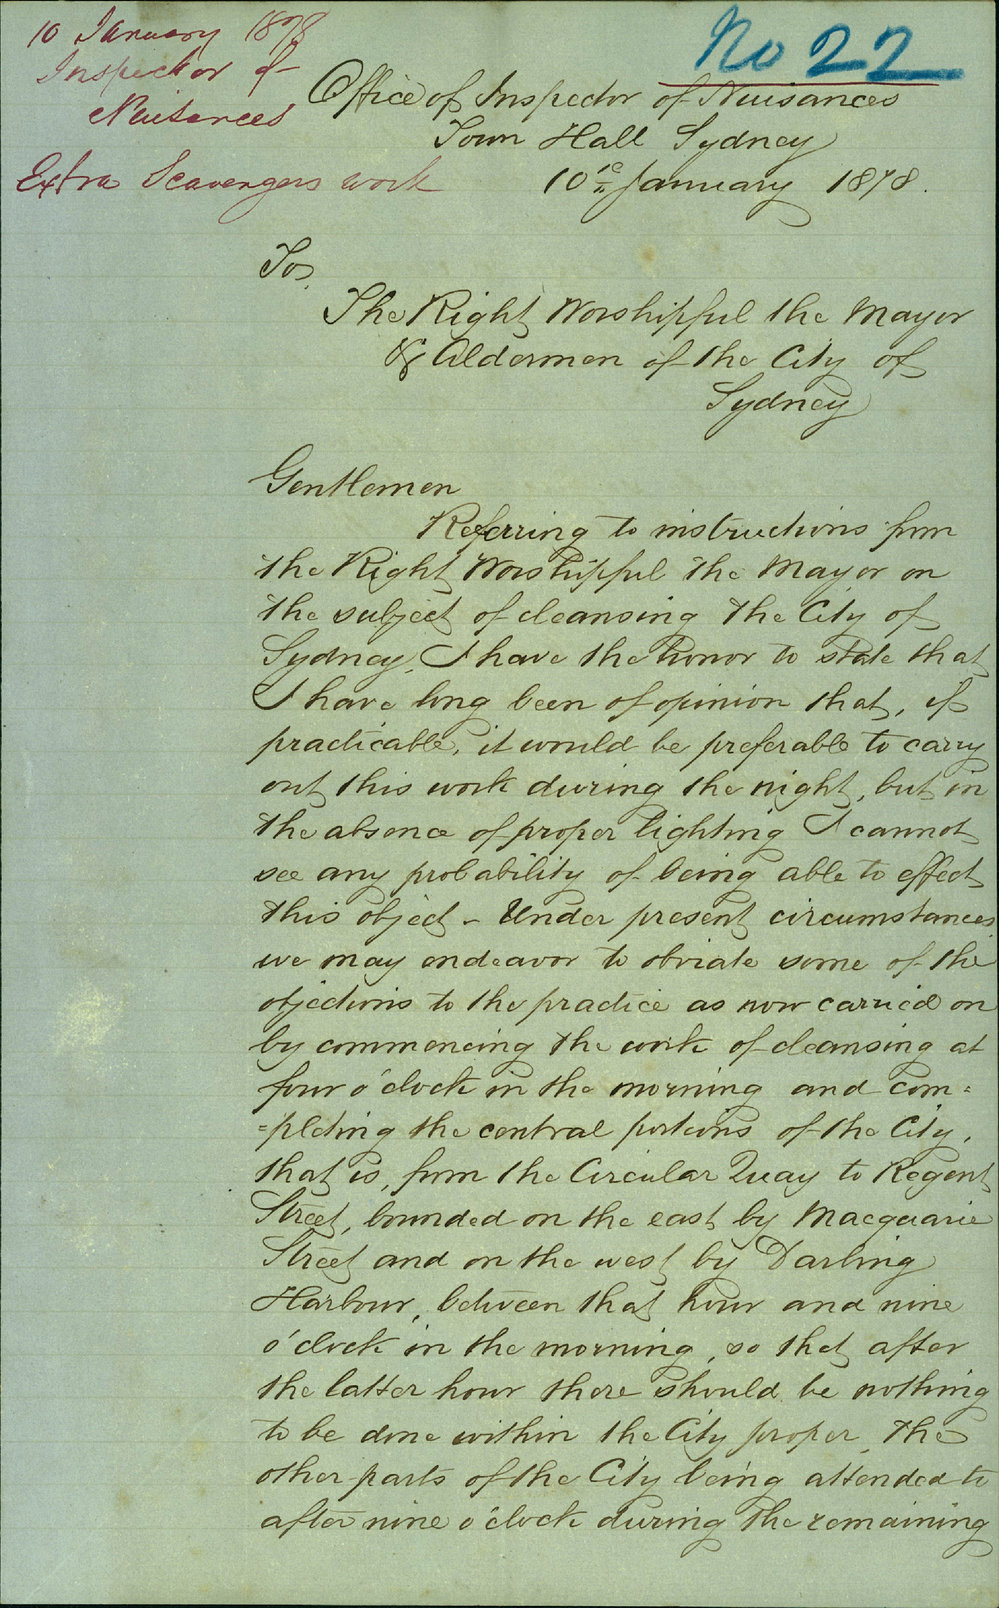 10 January 1878
Inspector of
Nuisances
Extra Scavengers work
No 22
Office of Inspector of Nuisances
Town Hall Sydney
10th January 1878.
To,
The Right Worshipful the Mayor
& Aldermen of the City of
Sydney
Gentlemen
Referring to instructions from
the Right Worshipful the Mayor on
the subject of cleansing the City of
Sydney, I have the honor to state that
I have long been of opinion that, if
practicable, it would be preferable to carry
out this work during the night, but in
the absence of proper lighting I cannot
see any probability of being able to effect
this object - Under present circumstances
we may endeavor to obviate some of the
objections to the practice as now carried on
by commencing the work of cleansing at
four o'clock in the morning and com=
=pleting the central portions of the City,
that is, from the Circular Quay to Regent
Street, bounded on the east by Macquarie
Street and on the west by Darling
Harbour, between that hour and nine
o'clock in the morning, so that after
the latter hour there should be nothing
to be done within the City proper, the
other parts of the City being attended to
after nine o'clock during the remaining